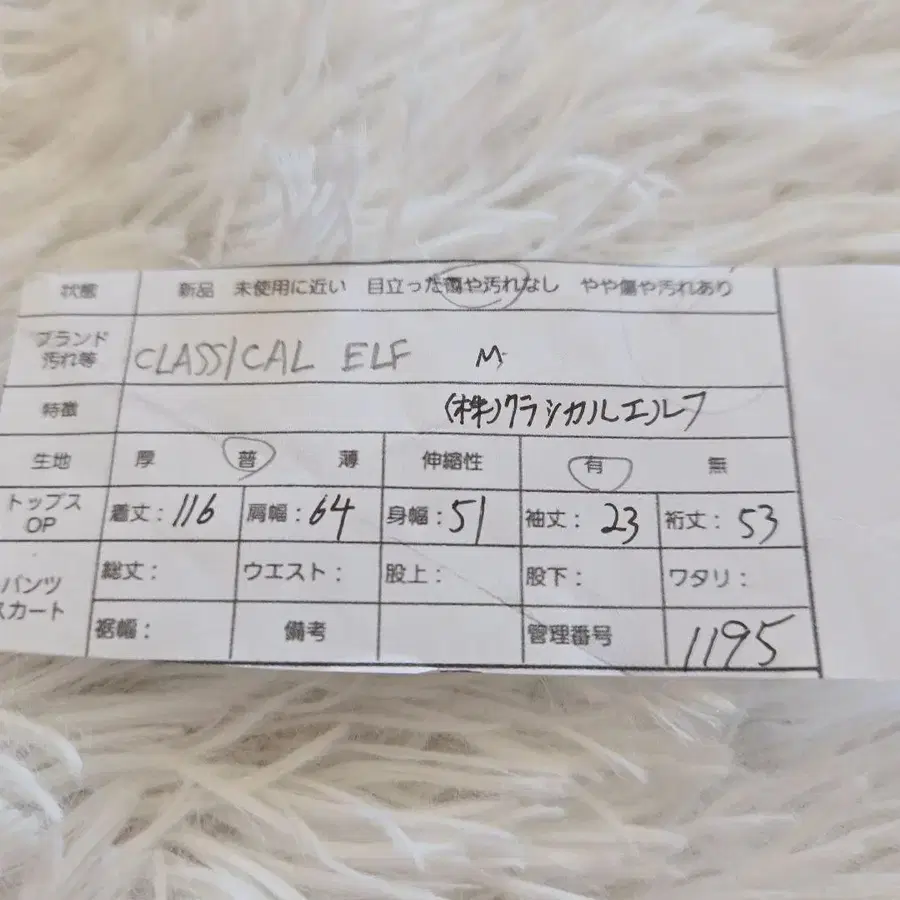 状態 新品 未使用に近い 目立った傷や汚れなし やや傷や汚れあり
ブランド
汚れ等 CLASSICAL ELF M
特徴 (株)クラシカルエルフ
生地 厚 普 薄 伸縮性 有 無
トップス
OP 着丈:116 肩幅:64 身幅:51 袖丈:23 裄丈:53
パンツ
スカート 総丈: ウエスト: 股上: 股下: ワタリ:
裾幅: 備考 管理番号 1195